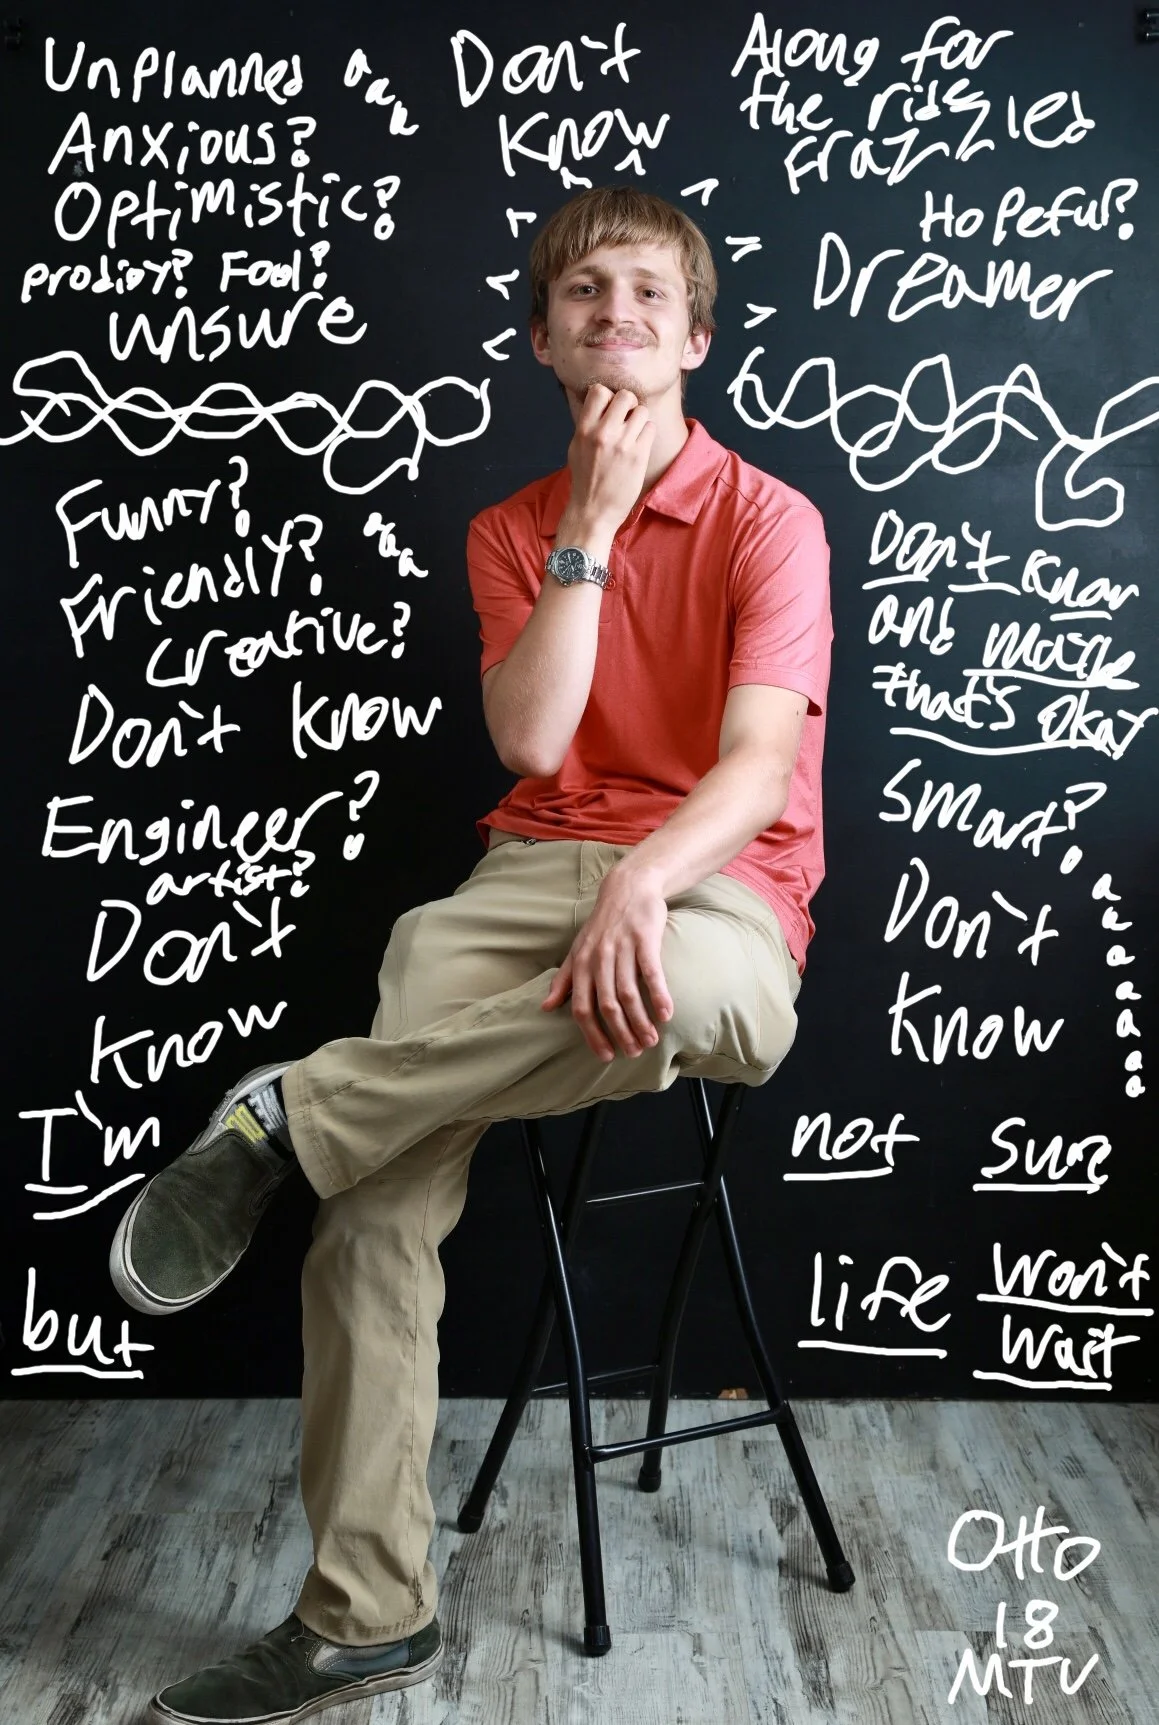 Unplanned
Anxious?
Optimistic?
Prodigy? Fool?
unsure
aaa
Don't
Know
Along for
the ride
Frazzled
Hopeful?
Dreamer
Funny?
Friendly?
creative?
aaa
Don't know
Engineer?
artist?
Don't
know
Don't know
and maybe
that's okay
Smart?
Don't
know
aaaaaaaa
I'm not sure
but life won't
wait
Otto
18
MTU